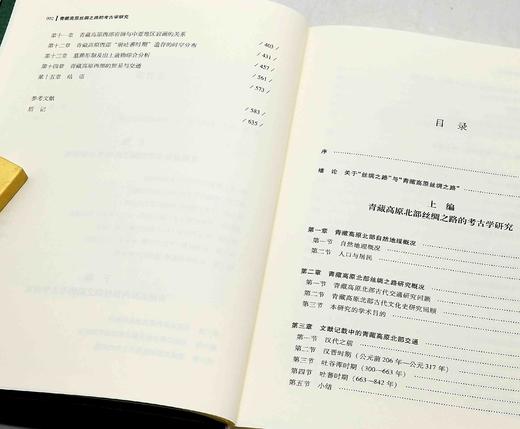 002 青藏高原丝绸之路的考古学研究
第十一章 青藏高原西部岩画与中亚地区岩画的关系 /403/
第十二章 青藏高原西部“前吐蕃时期”遗存的时空分布 /431/
第十三章 墓葬形制及出土遗物综合分析 /457/
第十四章 青藏高原西部的贸易与交通 /561/
第十五章 结语 /573/
参考文献 /583/
后记 /635/
目录
序
绪论 关于“丝绸之路”与“青藏高原丝绸之路”
上编
青藏高原北部丝绸之路的考古学研究
第一章 青藏高原北部自然地理概况
第一节 自然地理概况
第二节 人口与居民
第二章 青藏高原北部丝绸之路研究概况
第一节 青藏高原北部古代交通研究回顾
第二节 青藏高原北部古代文化史研究回顾
第三节 本研究的学术目的
第三章 文献记载中的青藏高原北部交通
第一节 汉代之前
第二节 汉晋时期（公元前206年—公元317年）
第三节 吐谷浑时期（300—663年）
第四节 吐蕃时期（663—842年）
第五节 小结